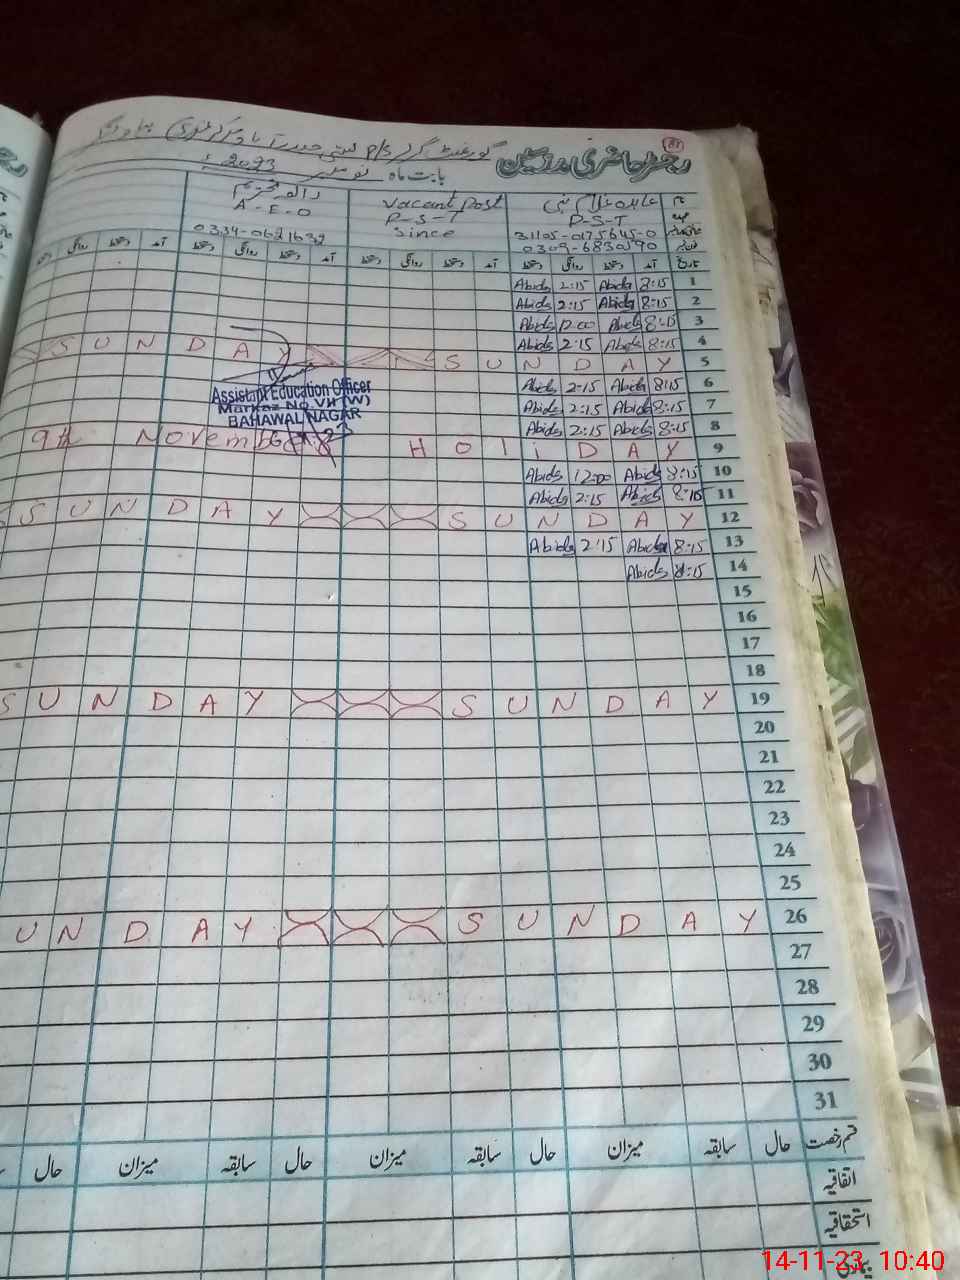 رجسٹر حاضری مدرسین
گورنمنٹ گرلز P/S بستی حیدر آباد مرکز غربی بہاولنگر
بابت ماہ نومبر 2023ء
نام عابدہ غلام نبی Vacant Post
P-S-T P-S-T A-E-O
31105-0175645-0 Since 0334-0621632
0309-6830590
تاریخ آمد دستخط روانگی دستخط آمد دستخط روانگی دستخط آمد دستخط روانگی دستخط آمد
1 8:15 Abida 2:15 Abida
2 8:15 Abida 2:15 Abida
3 8:15 Abida 12:00 Abida
4 8:15 Abida 2:15 Abida
5 SUNDAY SUNDAY
6 8:15 Abida 2:15 Abida
7 8:15 Abida 2:15 Abida
8 8:15 Abida 2:15 Abida
Assistant Education Officer
Markaz No.VII (W)
BAHAWAL NAGAR
9 9th November HOliDAY
10 8:15 Abida 12:00 Abida
11 8:15 Abida 2:15 Abida
12 SUNDAY SUNDAY
13 8:15 Abida 2:15 Abida
14 8:15 Abida
15
16
17
18
19 SUNDAY SUNDAY
20
21
22
23
24
25
26 UNDAY SUNDAY
27
28
29
30
31
قسم رخصت حال سابقہ میزان حال سابقہ میزان حال سابقہ میزان حال
اتفاقیہ
استحقاقیہ
بیماری
14-11-23 10:40